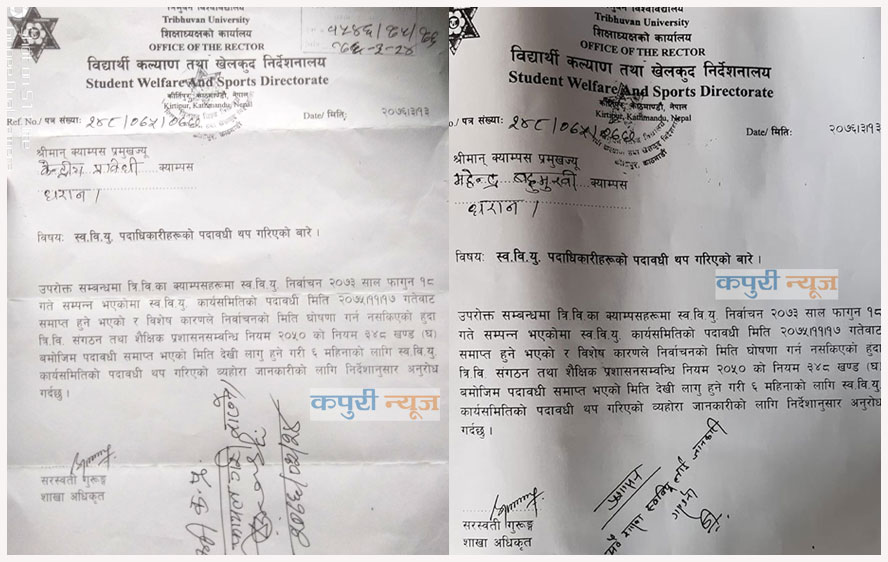 त्रिभुवन विश्वविद्यालय
Tribhuvan University
शिक्षाध्यक्षको कार्यालय
OFFICE OF THE RECTOR
विद्यार्थी कल्याण तथा खेलकुद निर्देशनालय
Student Welfare And Sports Directorate
कीर्तिपुर, काठमाण्डौ, नेपाल
Kirtipur, Kathmandu, Nepal
Ref. No./ पत्र संख्याः २४८/०७५/०७६
Date/ मितिः २०७६।३।१३
श्रीमान् क्याम्पस प्रमुखज्यू
केन्द्रीय प्रविधी क्याम्पस
धरान।
विषयः स्व.वि.यु. पदाधिकारीहरूको पदावधी थप गरिएको बारे।
उपरोक्त सम्बन्धमा त्रि.वि.का क्याम्पसहरूमा स्व.वि.यु. निर्वाचन २०७३ साल फागुन १८
गते सम्पन्न भएकोमा स्व.वि.यु. कार्यसमितिको पदावधी मिति २०७५।११।१७ गतेबाट
समाप्त हुने भएको र विशेष कारणले निर्वाचनको मिति घोषणा गर्न नसकिएको हुदा
त्रि.वि. संगठन तथा शैक्षिक प्रशासनसम्वन्धि नियम २०५० को नियम ३४८ खण्ड (घ)
बमोजिम पदावधी समाप्त भएको मिति देखी लागु हुने गरी ६ महिनाको लागि स्व.वि.यु.
कार्यसमितिको पदावधी थप गरिएको व्यहोरा जानकारीको लागि निर्देशानुसार अनुरोध
गर्दछु।
कपुरी न्यूज
सरस्वती गुरूङ्ग
शाखा अधिकृत
त्रिभुवन विश्वविद्यालय
Tribhuvan University
शिक्षाध्यक्षको कार्यालय
OFFICE OF THE RECTOR
विद्यार्थी कल्याण तथा खेलकुद निर्देशनालय
Student Welfare And Sports Directorate
कीर्तिपुर, काठमाण्डौ, नेपाल
Kirtipur, Kathmandu, Nepal
o./ पत्र संख्याः २४८/०७५/०७६
Date/ मितिः २०७६।३।१३
श्रीमान् क्याम्पस प्रमुखज्यू
महेन्द्र बहुमुखी क्याम्पस
धरान।
विषयः स्व.वि.यु. पदाधिकारीहरूको पदावधी थप गरिएको बारे।
कपुरी न्यूज
उपरोक्त सम्बन्धमा त्रि.वि.का क्याम्पसहरूमा स्व.वि.यु. निर्वाचन २०७३ साल फागुन १८
गते सम्पन्न भएकोमा स्व.वि.यु. कार्यसमितिको पदावधी मिति २०७५।११।१७ गतेबाट
समाप्त हुने भएको र विशेष कारणले निर्वाचनको मिति घोषणा गर्न नसकिएको हुदा
त्रि.वि. संगठन तथा शैक्षिक प्रशासनसम्वन्धि नियम २०५० को नियम ३४८ खण्ड (घ)
बमोजिम पदावधी समाप्त भएको मिति देखी लागु हुने गरी ६ महिनाको लागि स्व.वि.यु.
कार्यसमितिको पदावधी थप गरिएको व्यहोरा जानकारीको लागि निर्देशानुसार अनुरोध
गर्दछु।
प्रशासन
सरस्वती गुरूङ्ग
शाखा अधिकृत